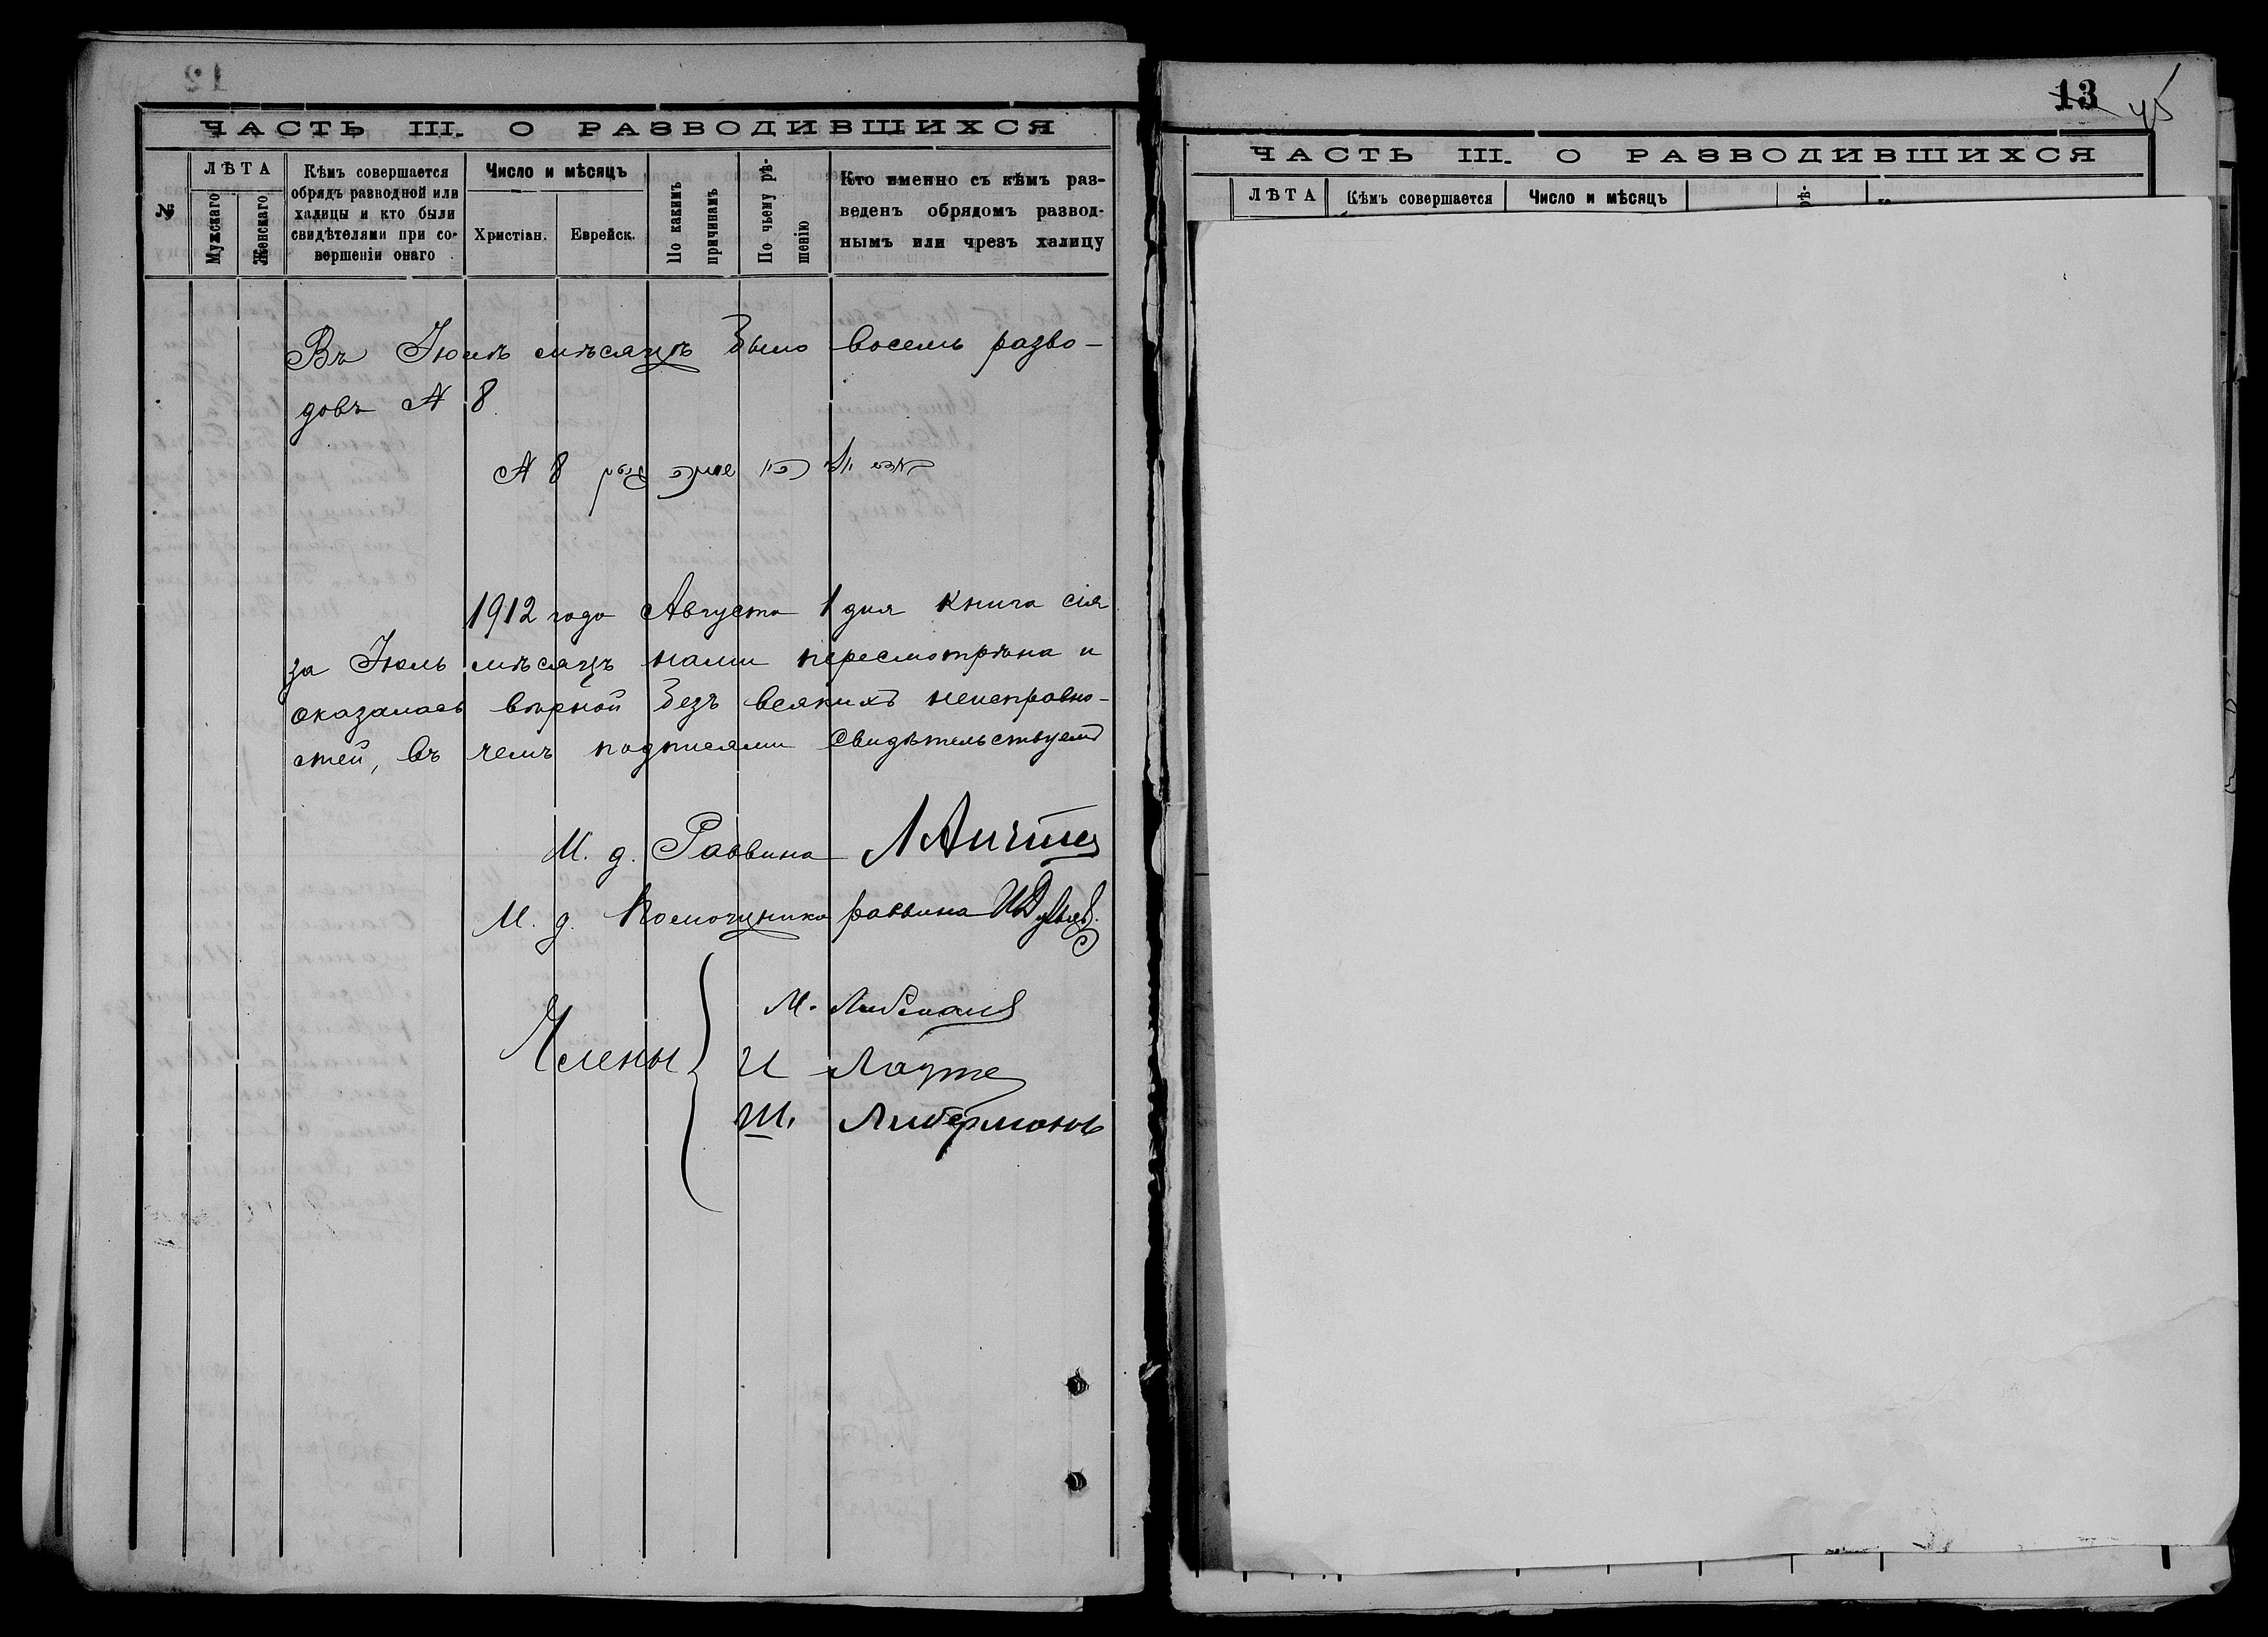 ЧАСТЬ III. О РАЗВОДИВШИХСЯ
№
ЛѢТА
Мужскаго
Женскаго
Кѣмъ совершается
обрядъ разводной или
халицы и кто были
свидѣтелями при со-
вершеніи онаго
Число и мѣсяцъ
Христіан.
Еврейск.
По какимъ
причинамъ
По чьему рѣ-
шенію
Кто именно съ кѣмъ раз-
веденъ обрядомъ развод-
нымъ или чрезъ халицу
Въ Іюлѣ мѣсяцѣ было восемь разво-
довъ № 8
№ 8
1912 года Августа 1 дня книга сія
за Іюль мѣсяцъ нами пересмотрѣна и
оказалась вѣрной безъ всякихъ неисправно-
стей, въ чемъ подписями свидѣтельствуемъ
И. д. Раввина
И. д. Помощника раввина
Члены
М. Либманъ
И
Ш. Либерманъ
13
45
ЧАСТЬ III. О РАЗВОДИВШИХСЯ
ЛѢТА
Кѣмъ совершается
Число и мѣсяцъ
рѣ-